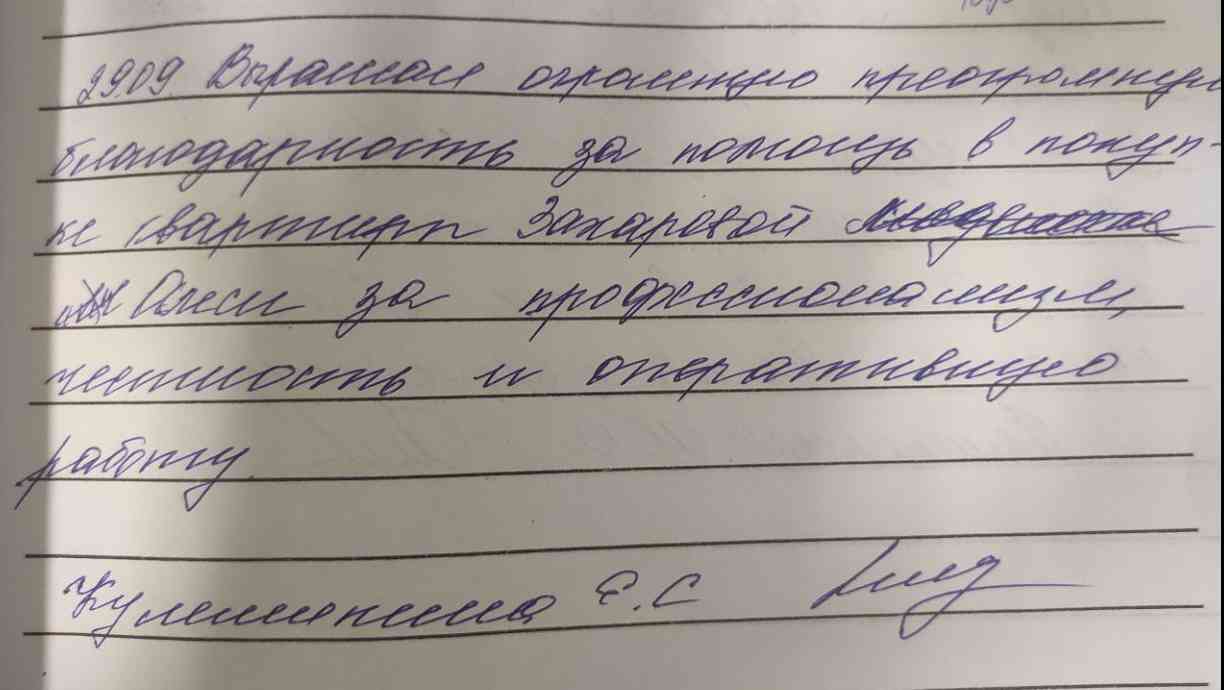 29.09. Выражаем огромную преогромную
благодарность за помощь в покуп-
ке квартиры Захаровой
Анеси за профессионализм,
честность и оперативную
работу
Е.С